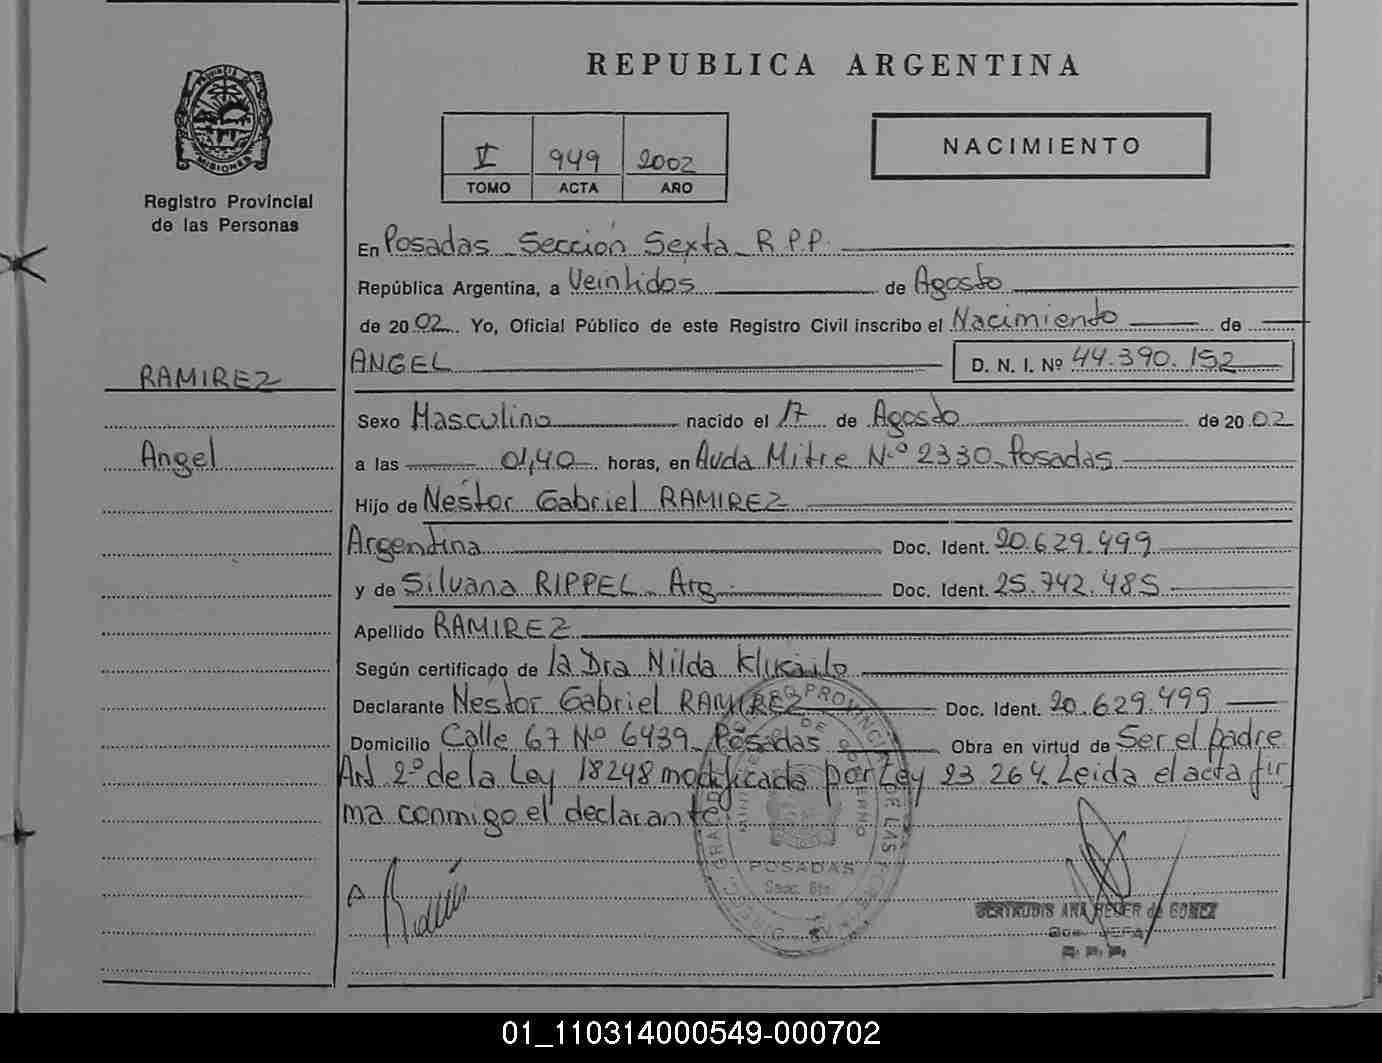 REPUBLICA ARGENTINA
PROVINCIA DE
MISIONES
Registro Provincial
de las Personas
V 949 2002
TOMO ACTA AÑO
NACIMIENTO
En Posadas Sección Sexta R.P.P.
República Argentina, a Veintidos de Agosto
de 2002 Yo, Oficial Público de este Registro Civil inscribo el Nacimiento de
RAMIREZ
ANGEL D. N. I. Nº 44.390.152
Sexo Masculino nacido el 17 de Agosto de 2002
Angel
a las 01,40 horas, en Avda Mitre Nº 2330 Posadas
Hijo de Nestor Gabriel RAMIREZ
Argentina Doc. Ident. 20.629.499
y de Silvana RIPPEL Arg. Doc. Ident. 25.742.485
Apellido RAMIREZ
Según certificado de la Dra Nilda
Declarante Nestor Gabriel RAMIREZ Doc. Ident. 20.629.499
Domicilio Calle 67 Nº 6439 Posadas Obra en virtud de Ser el padre
Art 2º de la Ley 18248 modificada por Ley 23 264. Leida el acta fir
ma conmigo el declarante
POSADAS
Secc. 6ta.
GERTRUDIS ANA de GOMEZ
JEFA
R. P. P.
01_110314000549-000702